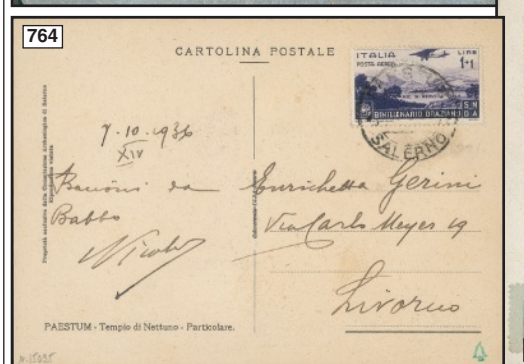 764
CARTOLINA POSTALE
ITALIA
POSTA AEREA
LIRE
1+1
BIMILLENARIO ORAZIANO
SALERNO
7-10-1936
XIV
Bacioni da
Babbo
Nicola
Enrichetta Gerini
Via Carlo Meyer 19
Livorno
Proprietà esclusiva della
PAESTUM - Tempio di Nettuno - Particolare.